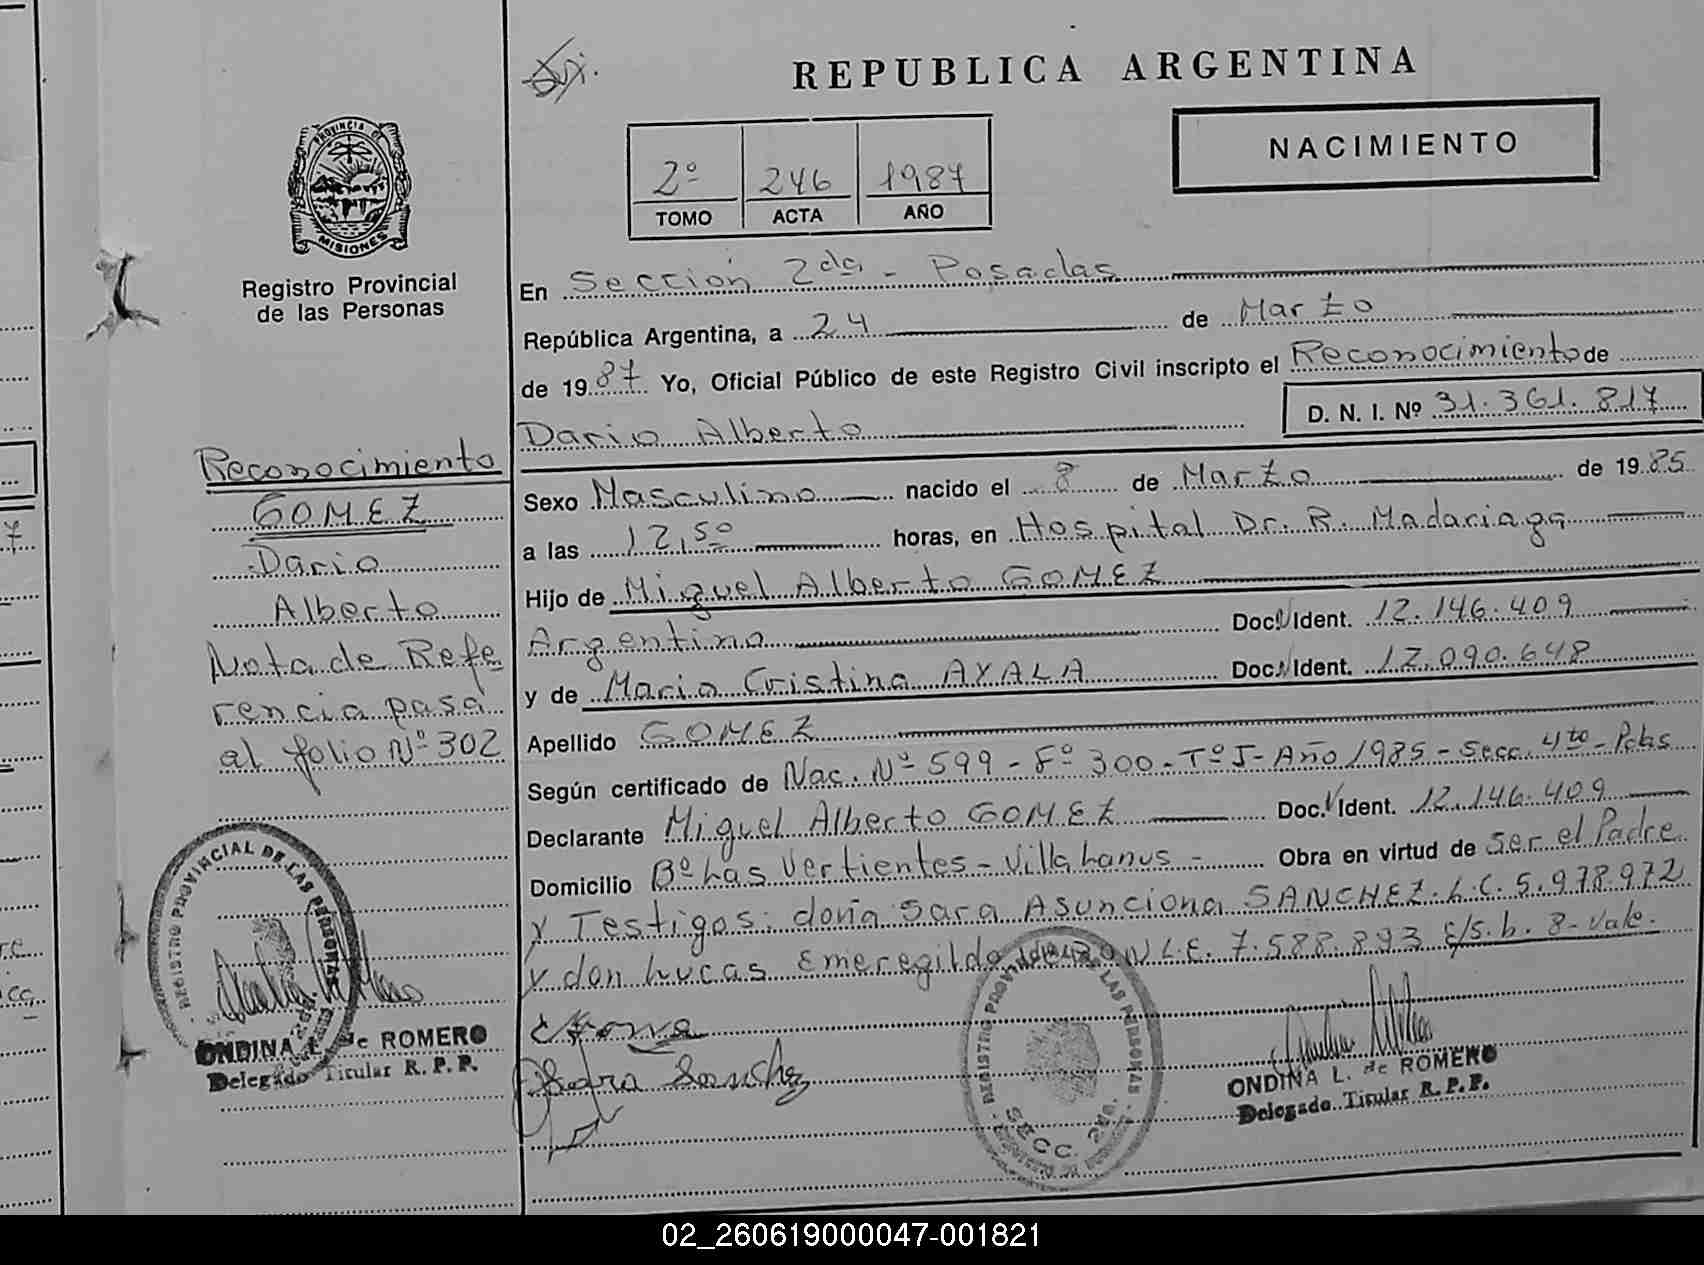 REPUBLICA ARGENTINA
NACIMIENTO
2º 246 1987
TOMO ACTA AÑO
PROVINCIA DE
MISIONES
Registro Provincial
de las Personas
Reconocimiento
GOMEZ
Dario
Alberto
Nota de Refe
rencia pasa
al folio Nº 302
REGISTRO PROVINCIAL DE LAS PERSONAS
ONDINA L. de ROMERO
Delegado Titular R. P. P.
En Sección 2da - Posadas
República Argentina, a 24 de Marzo
de 1987 Yo, Oficial Público de este Registro Civil inscripto el Reconocimiento de
Dario Alberto D. N. I. Nº 31.361.817
Sexo Masculino nacido el 8 de Marzo de 1985
a las 12,50 horas, en Hospital Dr. R. Madariaga
Hijo de Miguel Alberto GOMEZ
Argentino Doc. Ident. 12.146.409
y de Maria Cristina AYALA Doc. Ident. 12.090.648
Apellido GOMEZ
Según certificado de Nac. Nº 599 - Fº 300 - Tº I - Año 1985 - Secc. 4to - Pdas
Declarante Miguel Alberto GOMEZ Doc. Ident. 12.146.409
Domicilio Bº Las Vertientes - Villa Lanus - Obra en virtud de Ser el Padre
y Testigos: doña Sara Asunciona SANCHEZ. L.C. 5.978.972
y don Lucas Emeregildo L.E. 7.588.893 E/S. b. 8 - Vale.
Sanchez
REGISTRO PROVINCIAL DE LAS PERSONAS
SECC. 2da.
ONDINA L. de ROMERO
Delegado Titular R. P. P.
02_260619000047-001821